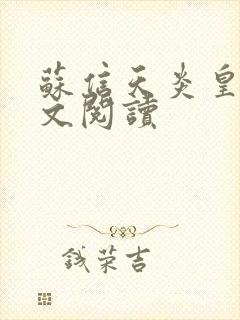 蘇信天炎皇
文閱讀
錢荣吉